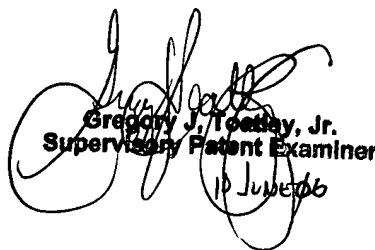 Gregory J. Toatley, Jr.
Supervisory Patent Examiner
10 JUNE 06